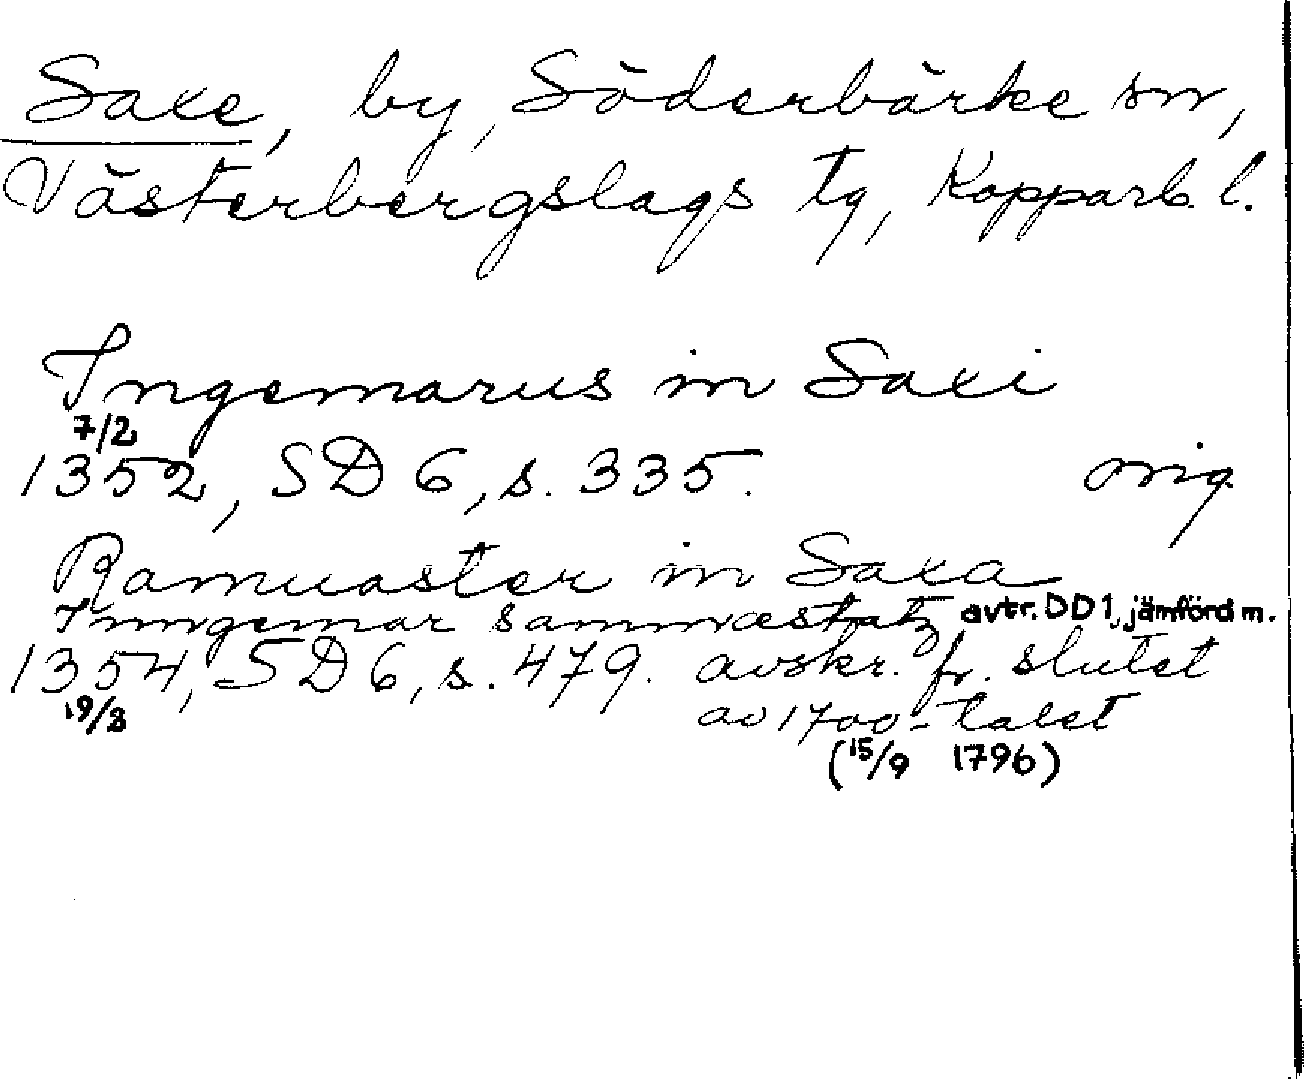 Saxe, by, Söderbärke sn,
Västerbergslags tg, Kopparb. l.
Ingemarus in Saxi
7/2
1352, SD 6, s. 335. orig
Ramuaster in Saxa
Inngemar sammastatz avtr. DD 1, jämförd m.
1354, SD 6, s. 479. avskr. fr. slutet
19/3 av 1700-talet
(15/9 1796)